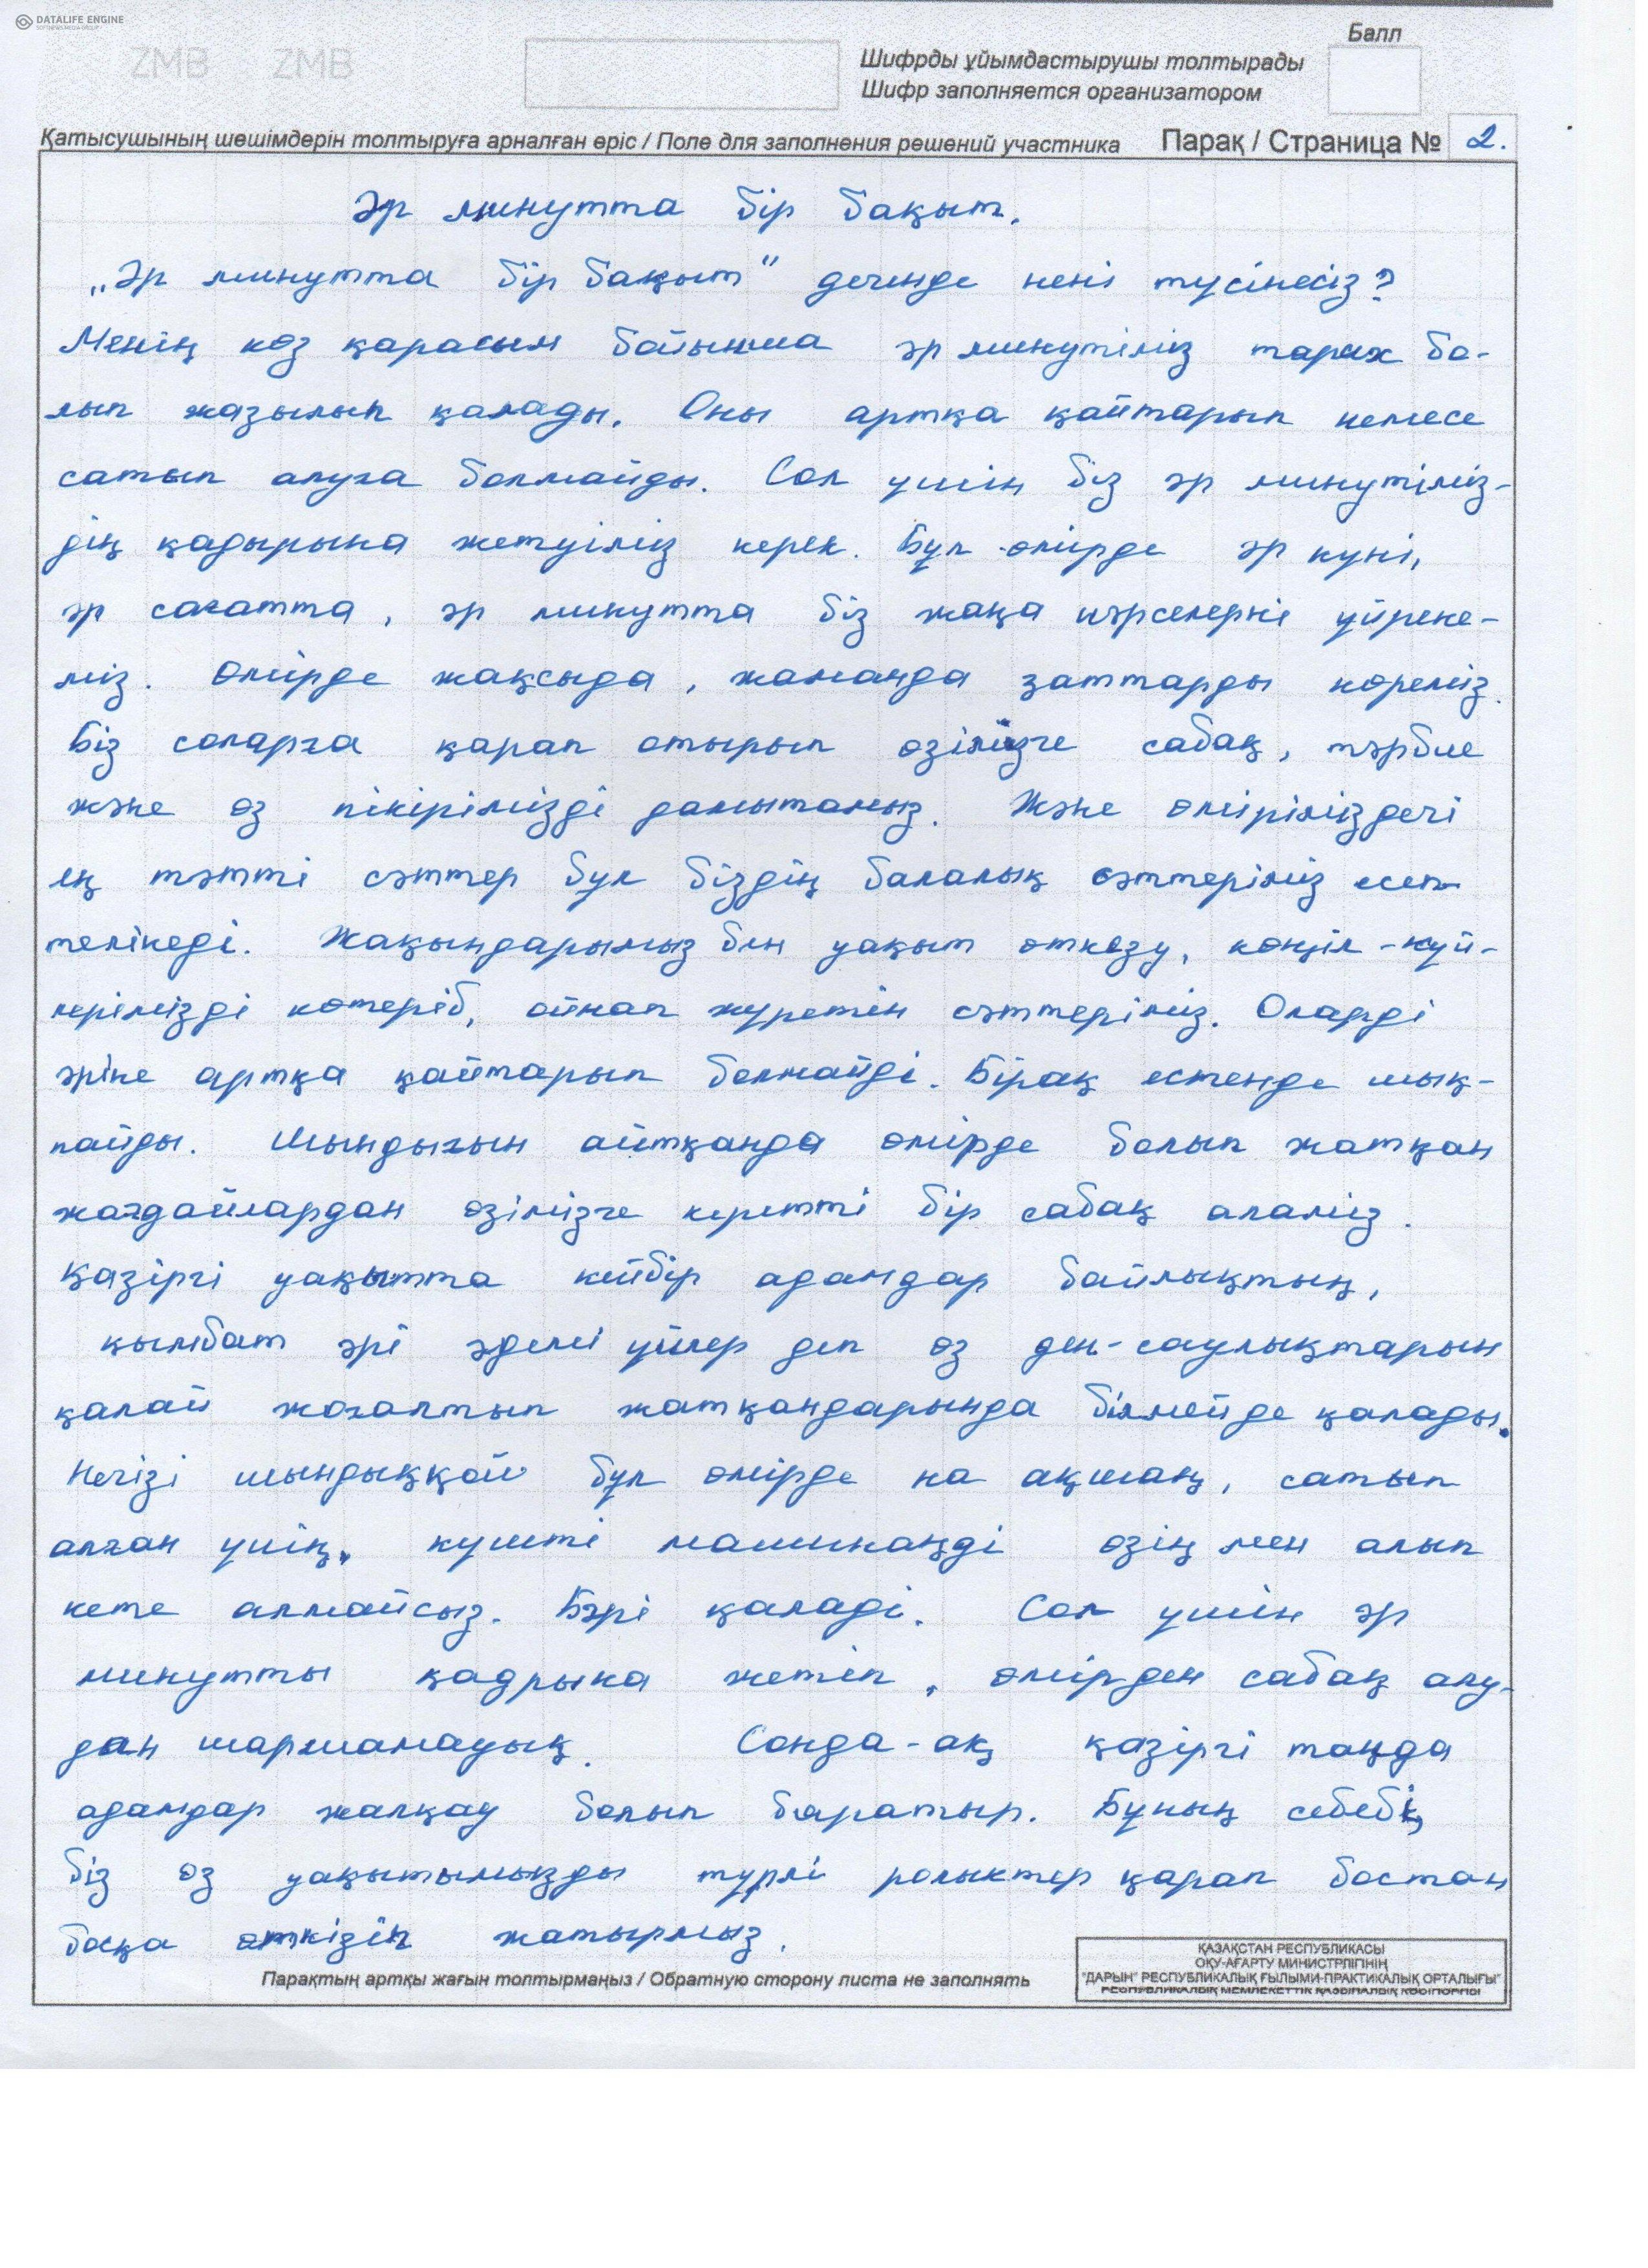 DATALIFE ENGINE
ZMB ZMB
Балл
Шифрды ұйымдастырушы толтырады
Шифр заполняется организатором
Қатысушының шешімдерін толтыруға арналған өріс / Поле для заполнения решений участника Парақ / Страница № 2.
Әр минутта бір бақыт.
„Әр минутта бір бақыт" дегенде нені түсінесіз?
Менің көз қарасым бойынша әр минутіміз тарих бо-
лып жазылып қалады. Оны артқа қайтарып немесе
сатып алуға болмайды. Сол үшін біз әр минутіміз-
дің қадырына жетуіміз керек. Бұл өмірде әр күні,
әр сағатта, әр минутта біз жаңа нәрселерні үйрене-
міз. Өмірде жақсыда, жаманда заттарды көреміз.
Біз соларға қарап отырып өзімізге сабақ, тәрбие
және өз пікірімізді дамытамыз. Және өміріміздегі
ең тәтті сәттер бұл біздің балалық сәттеріміз есеп-
телінеді. Жақындарымыз блн уақыт өткозу, көңіл-күй-
лерімізді көтеріб, ойнап жүретін сәттеріміз. Оларді
әріне артқа қайтарып болмайді. Бірақ естенде шық-
пайды. Шындығын айтқанда өмірде болып жатқан
жағдайлардан өзімізге керетті бір сабақ аламіз.
Қазіргі уақытта кейбір адамдар байлықтың,
қымбат әрі әдемі үйлер деп өз ден-саулықтарын
қалай жоғалтып жатқандарында білмейде қалады.
Негізі шындыққай бұл өмірде на ақшаң, сатып
алған үйің, күшті машинаңді өзің мен алып
кете алмайсыз. Бәрі қаладі. Сол үшін әр
минутты қадрына жетіп, өмірден сабақ алу-
дан шаршамауық. Сонда-ақ қазіргі таңда
адамдар жалқау болып баратыр. Бұның себебі,
біз өз уақытымызды түрлі ролыктер қарап бостан
босқа өткізіп жатырмыз.
Парақтың артқы жағын толтырмаңыз / Обратную сторону листа не заполнять
ҚАЗАҚСТАН РЕСПУБЛИКАСЫ
ОҚУ-АҒАРТУ МИНИСТРЛІГІНІҢ
"ДАРЫН" РЕСПУБЛИКАЛЫҚ ҒЫЛЫМИ-ПРАКТИКАЛЫҚ ОРТАЛЫҒЫ"
РЕСПУБЛИКАЛЫҚ МЕМЛЕКЕТТІК ҚАЗЫНАЛЫҚ КӘСІПОРНЫ